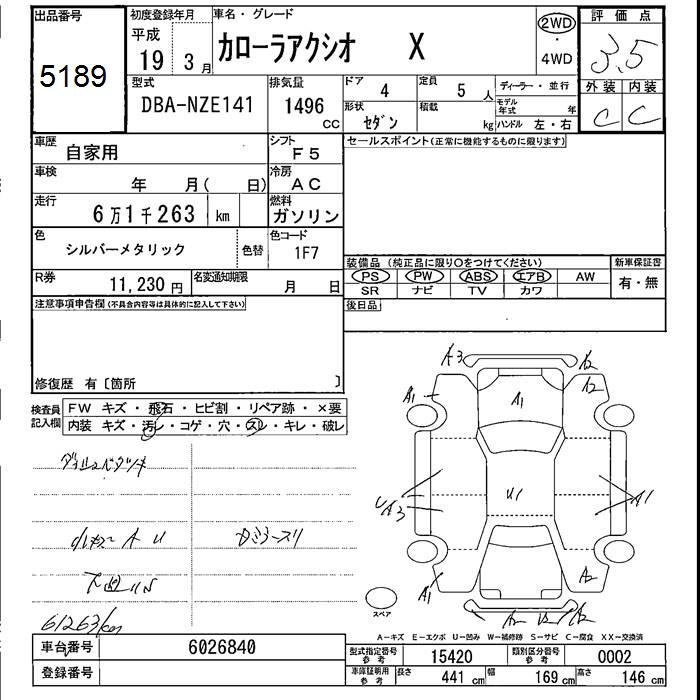 出品番号
5189
初度登録年月
平成
19 3 月
車名・グレード
カローラアクシオ X
2WD
・
4WD
評価点
3.5
外装 内装
C C
型式
DBA-NZE141
排気量
1496
CC
ドア 4
形状
セダン
定員 5 人
積載 kg
ディーラー・並行
モデル年式 年
ハンドル 左・右
車歴 自家用
シフト F5
車検 年 月( 日)
冷房 AC
走行 6万1千263 km
燃料 ガソリン
色 シルバーメタリック
色替
色コード 1F7
R券 11,230 円
名変通知期限 月 日
セールスポイント(正常に機能するものに限ります)
装備品(純正品に限り○をつけてください)
新車保証書
PS PW ABS エアB AW
SR ナビ TV カワ
有・無
後日品
注意事項申告欄(不具合内容等は具体的に記入して下さい)
修復歴 有〔箇所 〕
検査員記入欄
FW キズ・飛石・ヒビ割・リペア跡・×要
内装 キズ・汚レ・コゲ・穴・スレ・キレ・破レ
61263km
A3
A2
A1
A2
A1
U1
UA3
A1
A1
A2
スペア
A−キズ E−エクボ U−凹み W−補修跡 S−サビ C−腐食 XX−交換済
車台番号 6026840
登録番号
型式指定番号 参考 15420
類別区分番号 参考 0002
車庫証明用 参考 長さ 441 cm 幅 169 cm 高さ 146 cm